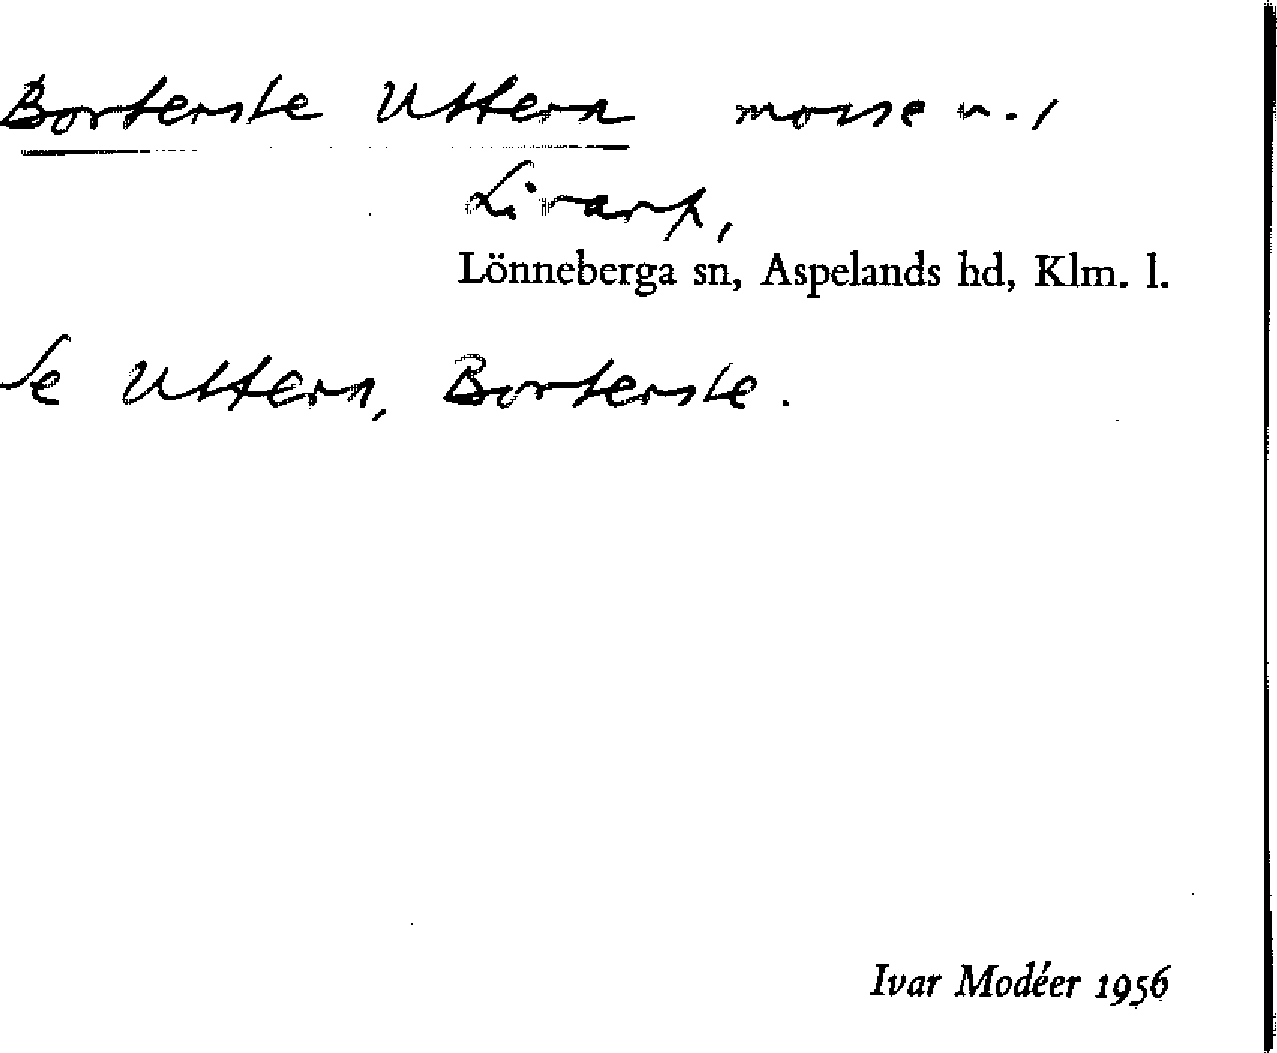 Borterste Uttern mosse u. /
Livarp,
Lönneberga sn, Aspelands hd, Klm. l.
Se Uttern, Borterste.
Ivar Modéer 1956